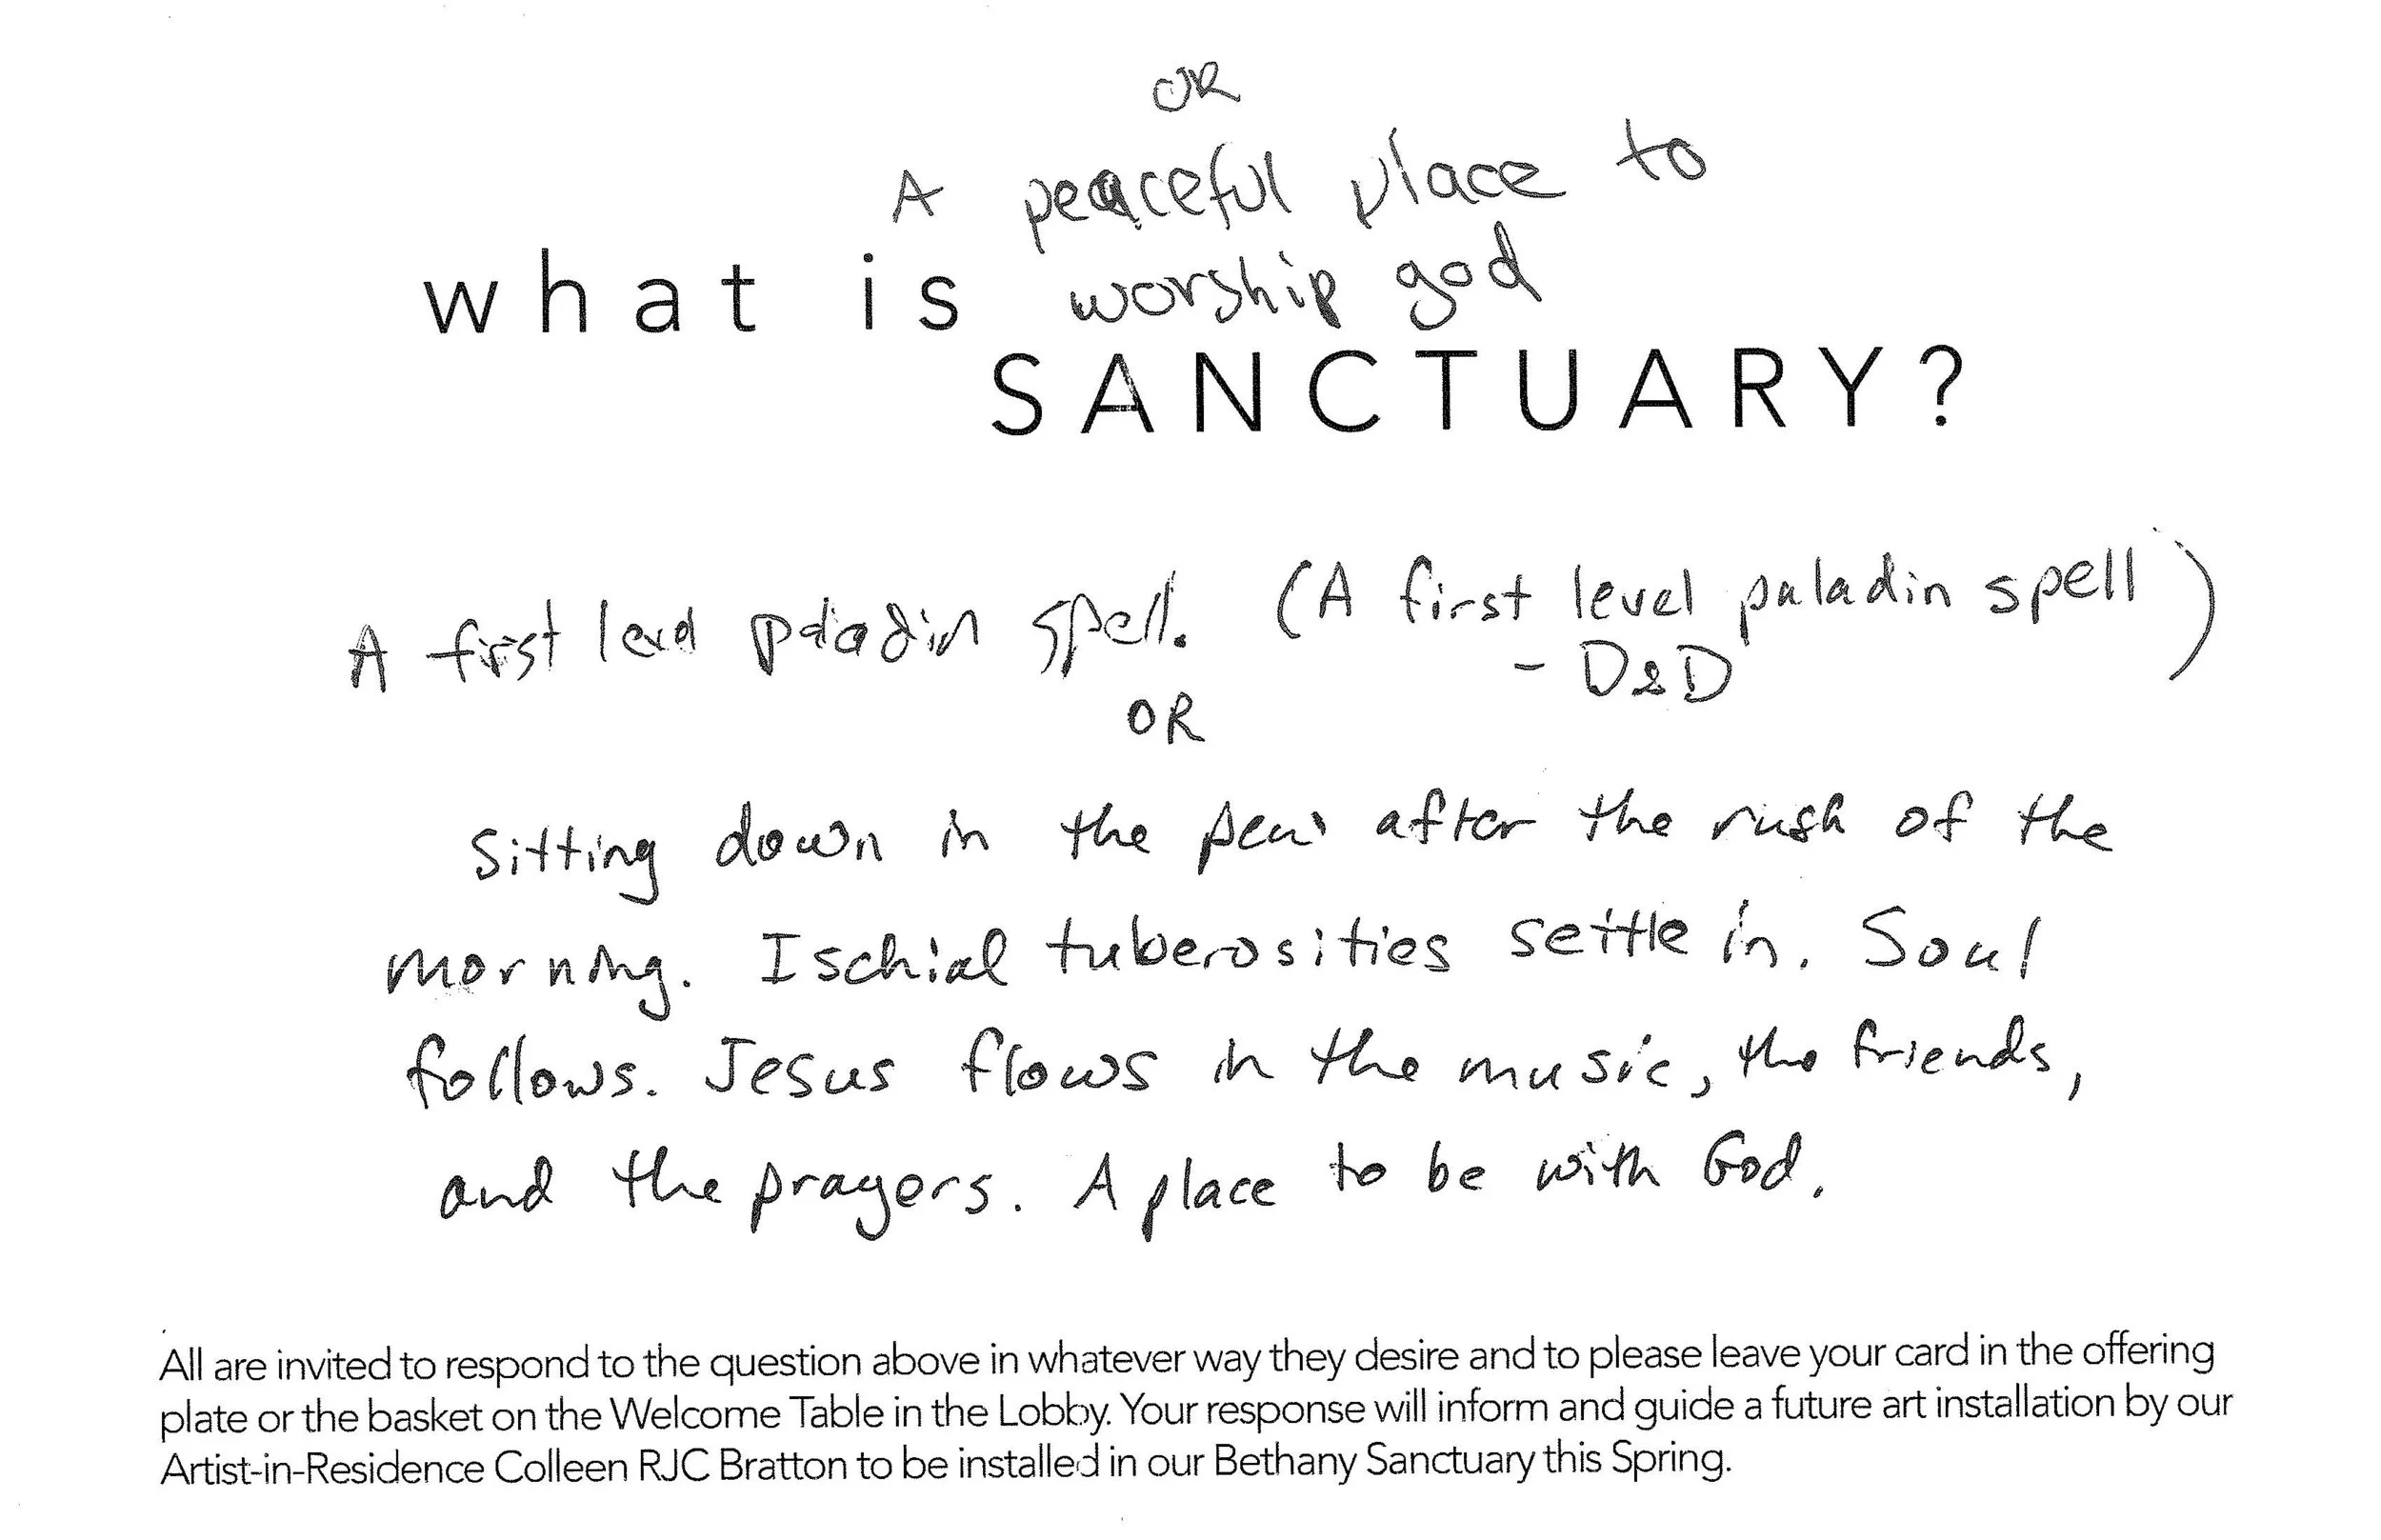 OR
A peaceful place to
worship god
what is
SANCTUARY?
A first level paladin spell. (A first level paladin spell)
- D&D
OR
Sitting down in the pew after the rush of the
morning. Ischial tuberosities settle in. Soul
follows. Jesus flows in the music, the friends,
and the prayers. A place to be with God.
All are invited to respond to the question above in whatever way they desire and to please leave your card in the offering
plate or the basket on the Welcome Table in the Lobby. Your response will inform and guide a future art installation by our
Artist-in-Residence Colleen RJC Bratton to be installed in our Bethany Sanctuary this Spring.